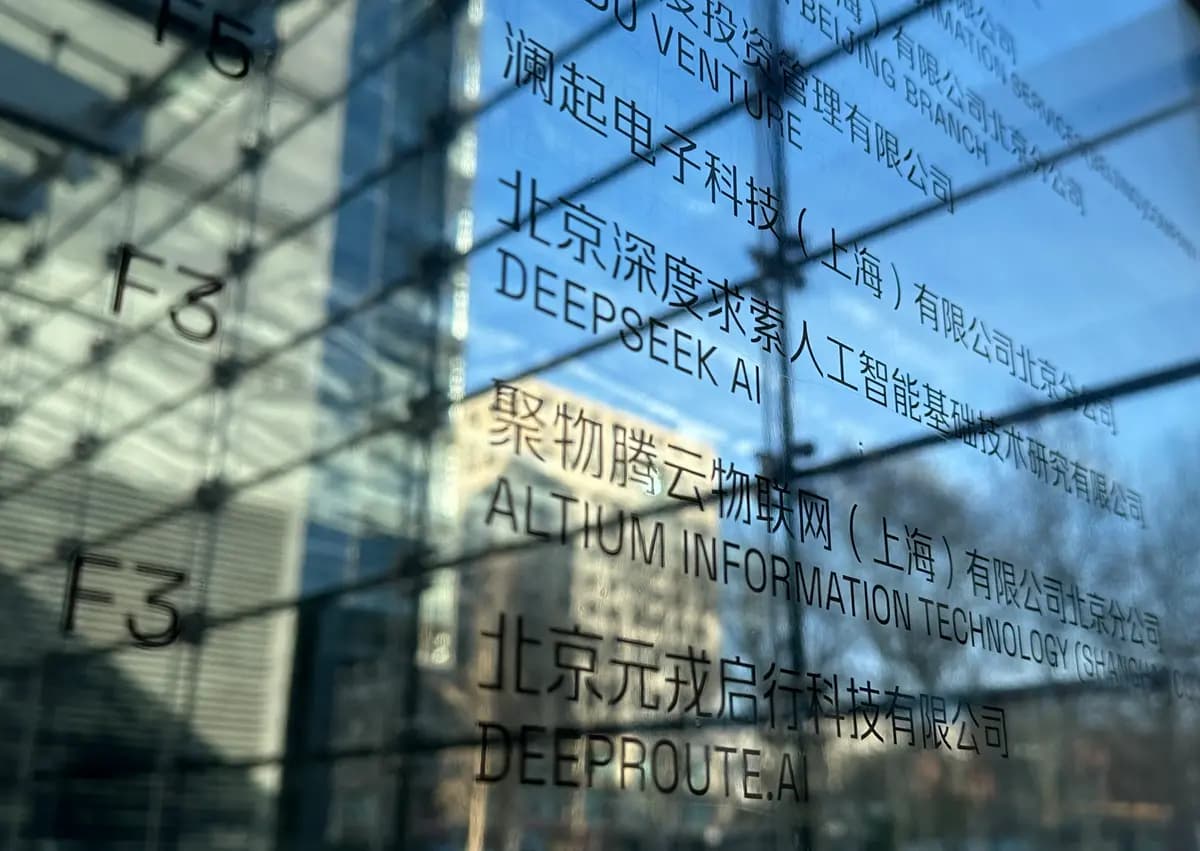 F5
海）有限公司北京分公司
BEIJING BRANCH
度投资管理有限公司
DU VENTURE
澜起电子科技（上海）有限公司北京分公司
F3
北京深度求索人工智能基础技术研究有限公司
DEEPSEEK AI
聚物腾云物联网（上海）有限公司北京分公司
ALTIUM INFORMATION TECHNOLOGY (SHANGHAI
F3
北京元戎启行科技有限公司
DEEPROUTE.AI